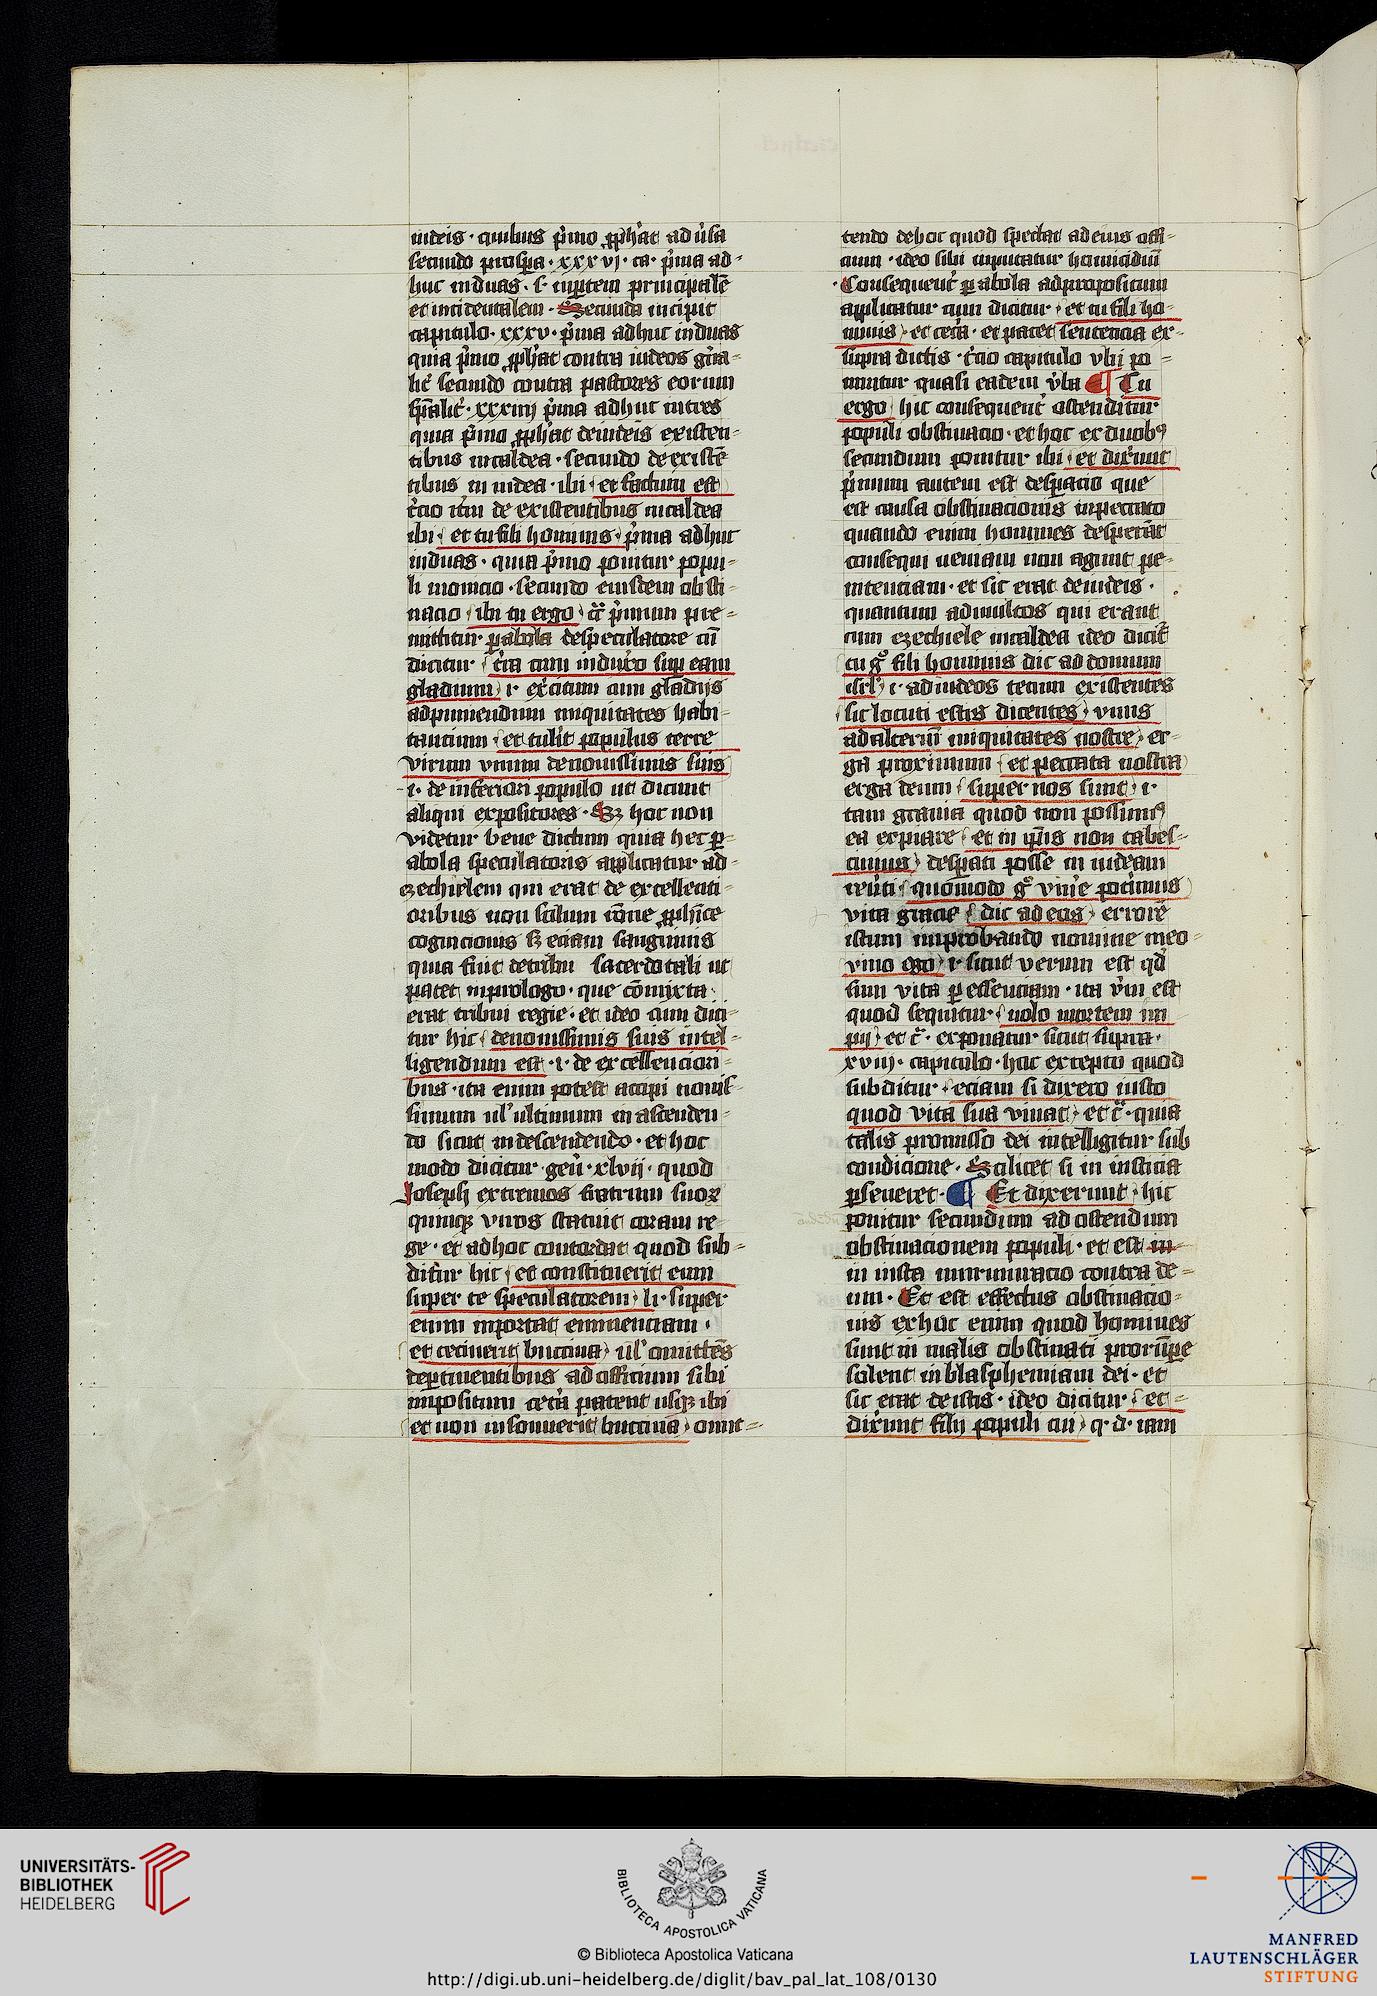 iudeis · quibus pͥmo ꝓphͣt aduͥsa
secundo prospͣa · xxxvj · ca · pͥma ad-
huc induas · s · inptem principalē
et incidentalem · Secunda incipit
capitulo · xxxv · pͥma adhuc induas
quia pͥmo ꝓphͣt contra iudeos gn̄a-
litͥ secundo contra pastores eorum
spͣalitͥ · xxxiiij pͥma adhuc intres
quia pͥmo ꝓphͣt deiudeis existen-
tibus incaldea · secundo deexistē
tibus in iudea · ibi · et factum est
tͥcio itͥm de existentibus incaldea
ibi · et tu fili hominis · pͥma adhuc
induas · quia pͥmo ponitur popu-
li monicio · secundo eiusdem obsti-
nacio · ibi tu ergo · cͣ pͥmum pre-
mittitur ꝑabola despeculatore cū
dicitur · tͥra cum induxͦo suꝑ eam
gladium · i · exͥcitum cum gladijs
adpuniendum iniquitates habi-
tantium · et tulͥit populus terre
virum vnum denouissimis suis
· i · de inferiori populo ut dicunt
aliqui expositores · Sꝫ hoc non
videtur bene dictum quia hec ꝑ-
abola speculatoris applicatur ad-
ezechielem qui erat de excellenti-
oribus non solum rōne ꝓphīce
cognicionis sꝫ eciam sanguinis
quia fuit detribu sacerdotali ut
patet inprologo · que cōmixta ·
erat tribui regie · et ideo cum dici-
tur hic · denouissimis suis intel-
ligendum est · i · de excellenciori-
bus · ita enim potest accipi nouis-
simum ul' ultimum in ascenden-
do sicut indescendendo · et hoc
modo dicitur · geñ · xlvii · quod
Joseph extremos fratrum suoꝝ
quinqꝫ viros statuit coram re-
ge · et adhoc concordat quod sub-
ditur hic · et constituerit eum
super te speculatorem · li · super
enim inportat eminenciam ·
et cecinerit buccina · ul' omittēs
deꝑtinentibus ad officium sibi
impositum cetͣa patent usqꝫ ibi
et non insonuerit buccina · omit-
tendo dehoc quod spectat adeius offi-
cium · ideo sibi inputatur homicidiū
Consequentͥ ꝑabola adpropositum
applicatur cum dicitur · et tu fili ho-
minis · et cetͣa · et patet sentencia ex-
supra dictis · tͥcio capitulo vbi po-
nuntur quasi eadem vͥba ¶ Tu
ergo hic consequentͥ ostenditur
populi obstinacio · et hoc exduobꝰ
secundum ponitur ibi · et dixͥunt
pͥmum autem est despͣacio que
est causa obstinacionis inpeccato
quando enim homines desperāt
consequi ueniam non agunt pe-
nitenciam · et sic erat deiudeis ·
quantum admultos qui erant
cum ezechiele incaldea ideo dicit̄
tu gͦ fili hominis dic ad domum
isrl' · i · adiudeos tecum existentes
sic locuti estis dicentes · vnus
adalterū iniquitates nostre · er-
ga proximum · et peccata nostra
erga deum · super nos sunt · i ·
tam grauia quod non possimꝰ
ea expiare · et in ip̄is non tabes-
cimus · despͣati posse in iudeam
reuͥti · quōmodo gͦ viuͥe potͥimus
vita gracie · dic ad eos · errorē
istum improbando nomine meo-
viuo ego · i · sicut verum est qd̄
sum vita ꝑ essenciam · ita vͥm est
quod sequitur · nolo mortem im
pij · et cͣ · exponatur sicut supra ·
xviij · capitulo · hoc excepto quod
subditur · eciam si dixero iusto
quod vita sua viuat · et cͣ · quia
talis promisso dei intelligitur sub
condicione · Scilicet si in insticia
ꝑseueret · ¶ Et dixerunt · hic
ponitur secundum ad ostendum
obstinacionem populi · et est in-
in iusta murmuracio contra de-
um · Et est effectus obstinacio-
nis exhoc enim quod homines
sunt in malis obstinati prorūpe
solent inblasphemiam dei · et
sic erat deistis · ideo dicitur · et-
dixͥunt filij populi tui · q · d · iam
UNIVERSITÄTS-
BIBLIOTHEK
HEIDELBERG
BIBLIOTECA APOSTOLICA VATICANA
© Biblioteca Apostolica Vaticana
http://digi.ub.uni-heidelberg.de/diglit/bav_pal_lat_108/0130
MANFRED
LAUTENSCHLÄGER
STIFTUNG